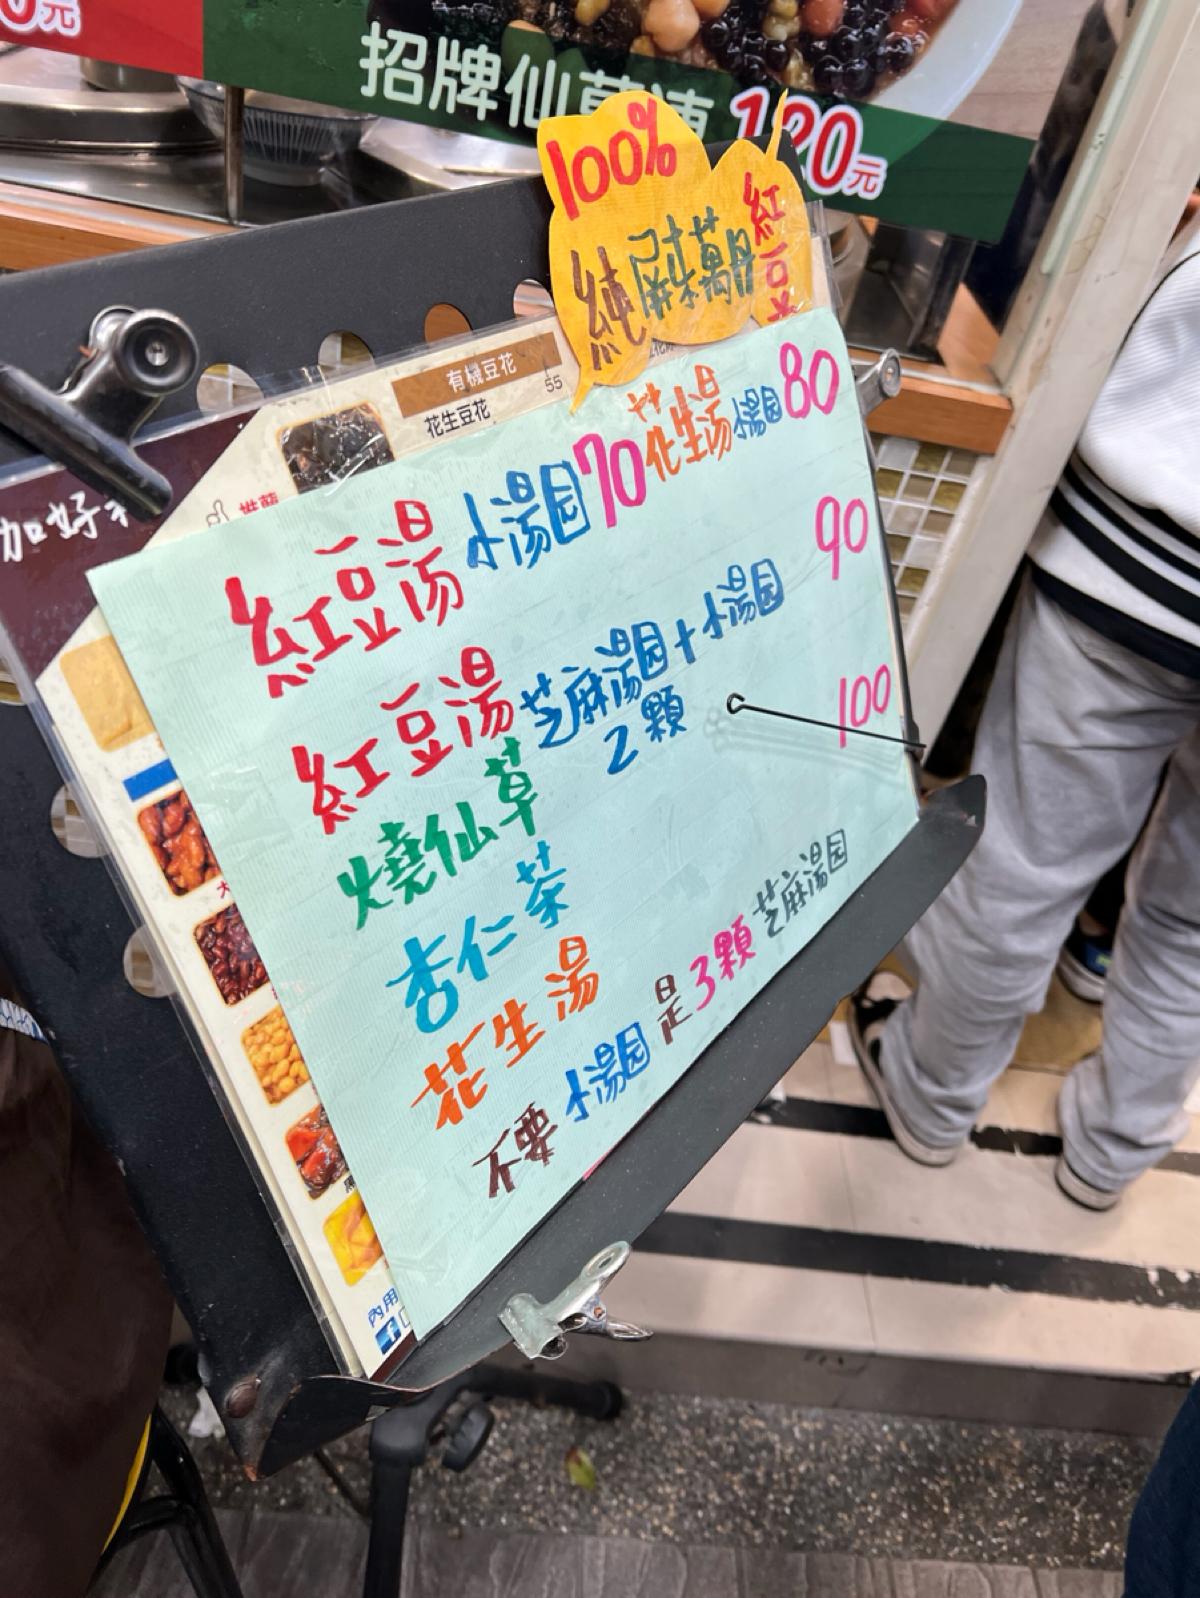 0元
招牌仙草凍 120元
100%
純屏東萬丹
紅豆
有機豆花
花生豆花 55
推薦
加好
紅豆湯 小湯园 70 花生湯 小湯园 80
紅豆湯 芝麻湯园+小湯园 90
2顆
燒仙草 100
杏仁茶
花生湯
不要 小湯园 是3顆 芝麻湯园
內用